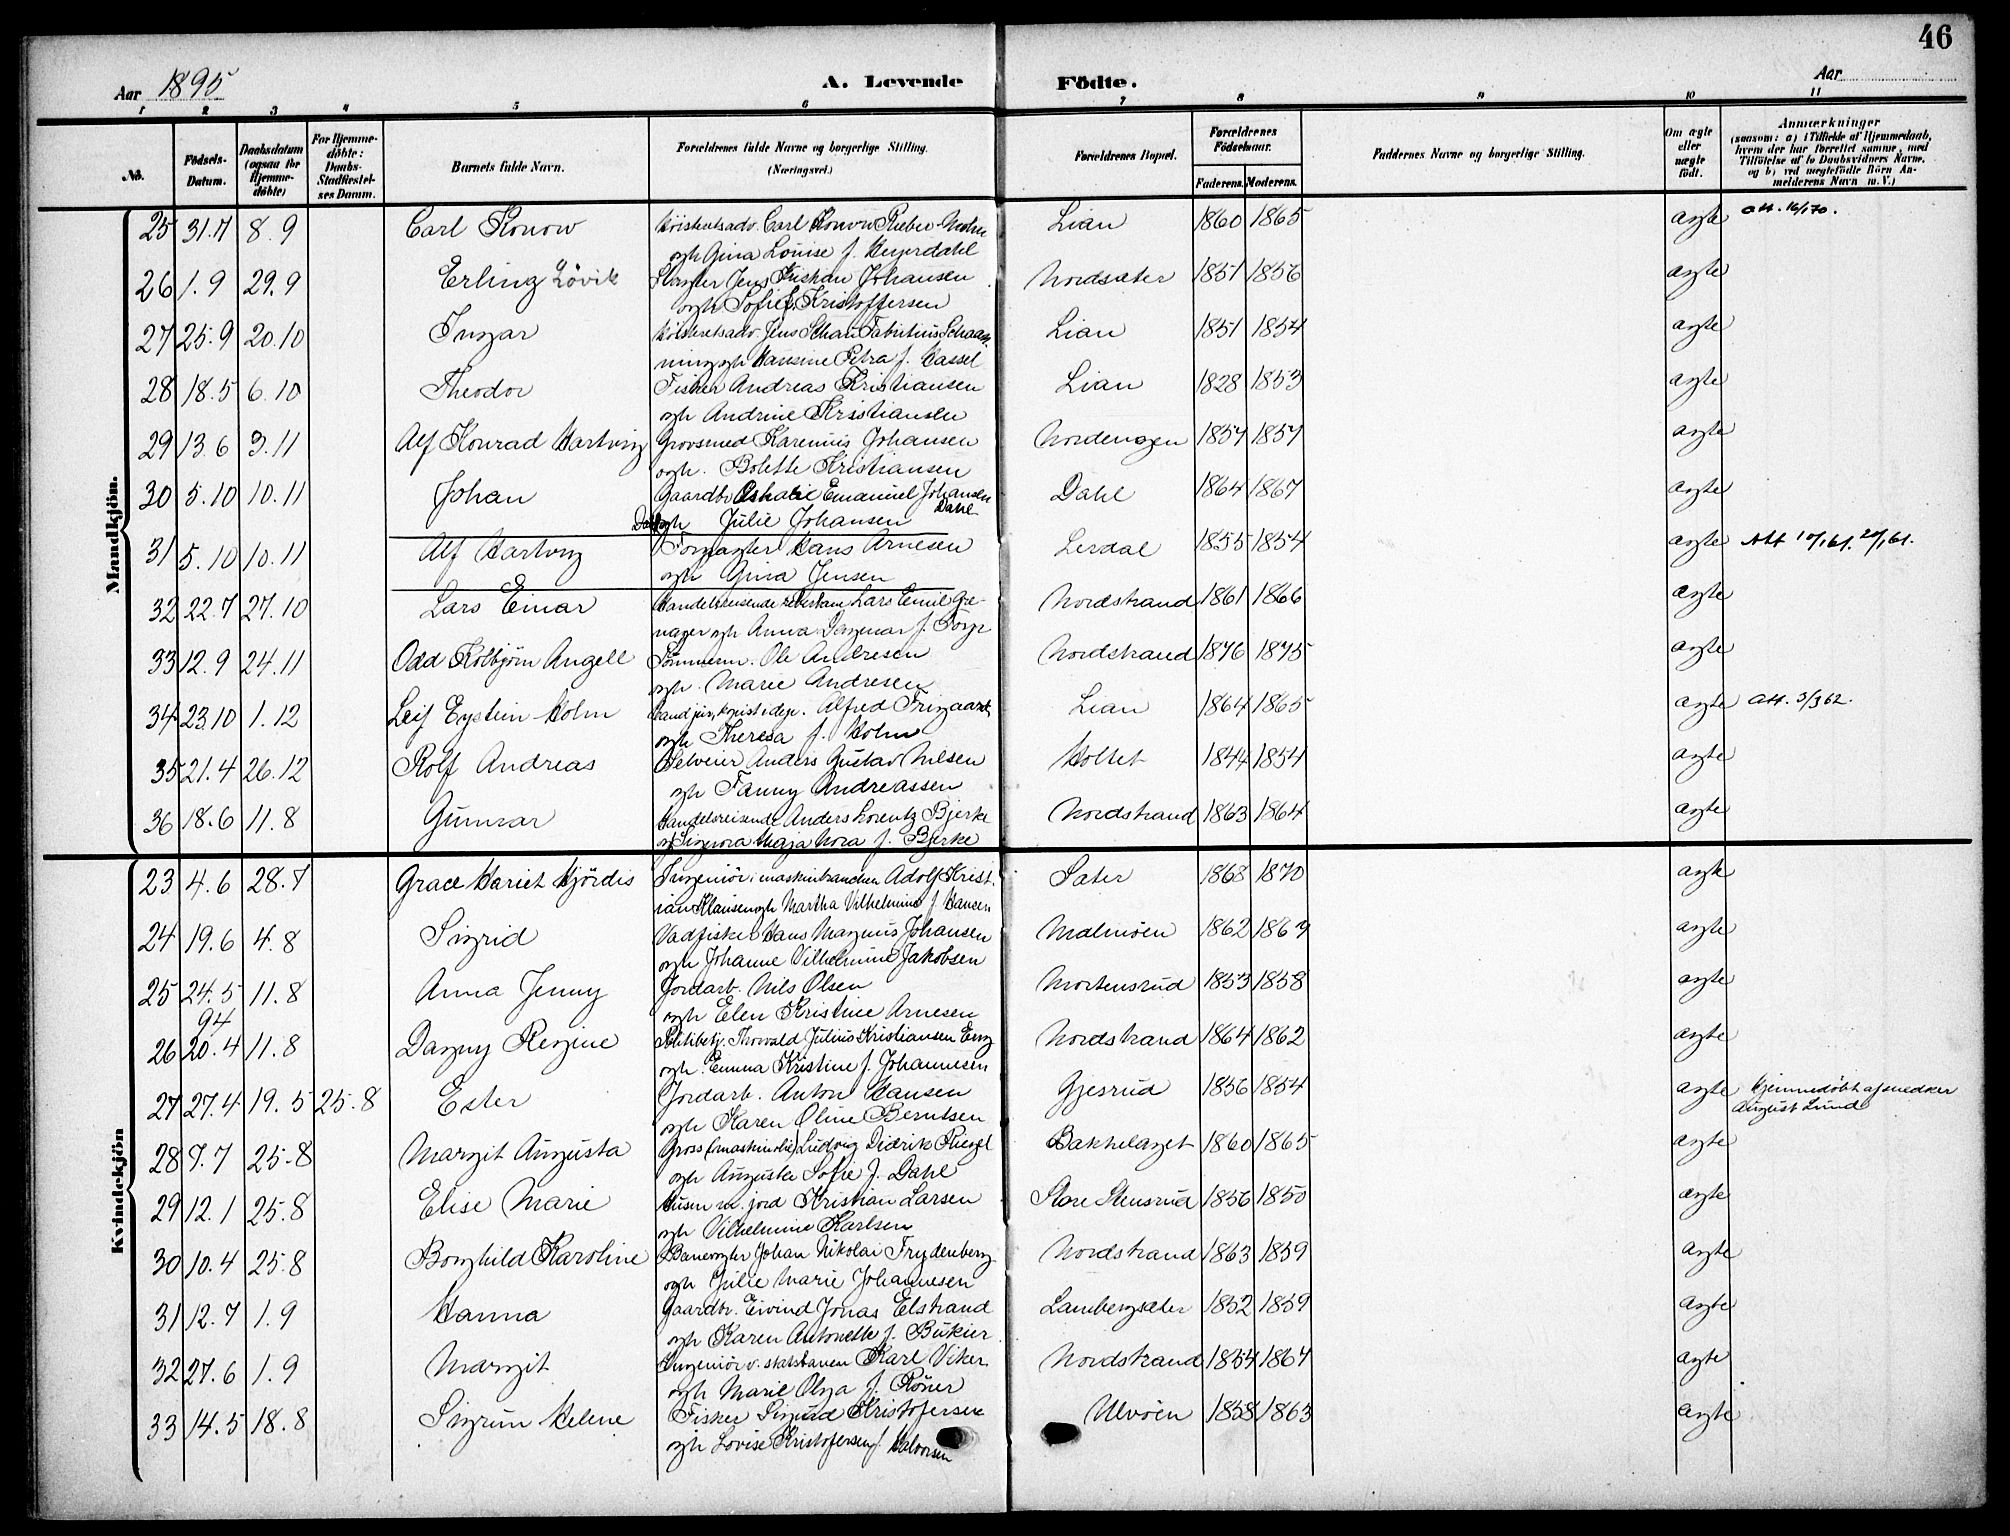 46
Aar 1895
A. Levende Födte.
Aar
1 2 3 4 5 6 7 8 9 10 11
No.
Födsels-Datum.
Daabsdatum (ogsaa for Hjemme-döbte)
For Hjemme-döbte: Daabs-Stadfæstel-ses Datum.
Barnets fulde Navn.
Forældrenes fulde Navne og borgerlige Stilling. (Næringsvei.)
Forældrenes Bopæl.
Forældrenes Födselsaar.
Faderens. Moderens.
Faddernes Navne og borgerlige Stilling.
Om ægte eller uægte födt.
Anmærkninger (saasom: a) i Tilfælde af Hjemmedaab, hvem der har forrettet samme, med Tilföielse af to Daabsvidners Navne. og b) ved uægtefödte Börn An-melderens Navn m. V.)
Mandkjön.
25 31.7 8.9 Carl Konow Höiesteretsadv. Carl Konow Rieber Lian 1860 1865 ægte att. 16/170.
ogh Gina Louise f. Heyerdahl
26 1.9 29.9 Erling Lövik Slagter Jens Kristian Johansen Nordsæter 1851 1856 ægte
ogh Sofie f. Kristoffersen
27 25.9 20.10 Ingar Höiesteretsadv. Jens Schan Fabritius Schaan- Lian 1851 1854 ægte
ning ogh Hansine Petra f. Hassel
28 18.5 6.10 Theodor Fisker Andreas Kristiansen Lian 1828 1853 ægte
ogh Andrine Kristiansen
29 13.6 3.11 Alf Konrad Hartvig Grovsmed Karenius Johansen Nordengen 1857 1857 ægte
ogh. Bolette Kristiansen
30 5.10 10.11 Johan Gaardbr. Emanuel Johansen Dahl 1864 1867 ægte
Dahl
ogh Julie Johansen
31 5.10 10.11 Alf Hartvig Forpagter Hans Arnesen Lerdal 1855 1854 ægte Att 10/161. 20/161.
ogh Gina Jensen
32 22.7 27.10 Lars Einar Handelsreisende Lars Emil Gre- Nordstrand 1861 1866 ægte
nager ogh Anna Dagmar f. Torp
33 12.9 24.11 Odd Kolbjörn Angell Tömmerm. Ole Andresen Nordstrand 1876 1875 ægte
ogh. Marie Andresen
34 23.10 1.12 Leif Eystein Holm Cand jur. Alfred Frigaard Lian 1864 1865 ægte att. 3/362.
ogh Theresa f. Holm
35 21.4 26.12 Rolf Andreas Selveier Anders Gustav Nilsen Holtet 1844 1854 ægte
ogh Fanny Andreassen
36 18.6 11.8 Gunnar Handelsreisende Anders Lorentz Bjerke Nordstrand 1863 1864 ægte
og Signora Maja Nora f. Bjerke
Kvindekjön
23 4.6 28.7 Grace Hariet Hjördis Ingeniör i maskinbranchen Adolf Krist- Sæter 1868 1870 ægte
ian Klausen ogh Martha Vilhelmine f Hansen
24 19.6 4.8 Sigrid Vadfisker Hans Magnus Johansen Malmöen 1862 1869 ægte
ogh Johanne Vilhelmine Jakobsen
25 24.5 94 11.8 Anna Jenny Jordarb. Nils Olsen Mortensrud 1853 1858 ægte
ogh Elen Kristine Arnesen
26 20.4 11.8 Dagny Regine Politibetj. Thorvald Julius Kristiansen Eng Nordstrand 1864 1862 ægte
ogh. Emma Kristine f. Johannesen
27 27.4 19.5 25.8 Ester Jordarb. Anton Hansen Gjesrud 1856 1854 ægte Hjemmedöbt af snedker
August Lund
ogh Karen Oline Berntsen
28 9.7 25.8 Margit Augusta Gross (maskinolie) Ludvig Didrik Ruegl Bækkelaget 1860 1865 ægte
ogh Auguste Sofie f. Dahl
29 12.1 25.8 Elise Marie Husm m. jord Kristian Larsen Store Stensrud 1856 1850 ægte
ogh Vilhelmine Karlsen
30 10.4 25.8 Borghild Karoline Banevogter Johan Nikolai Frydenberg Nordstrand 1863 1859 ægte
ogh Julie Marie Johannesen
31 12.7 1.9 Hanna Gaardbr. Eivind Jonas Elstrand Lambergsæter 1852 1859 ægte
ogh Karen Antonette f. Bukier
32 27.6 1.9 Margit Ingeniör v. statsbanen Karl Viker Nordstrand 1854 1867 ægte
ogh Marie Olga f. Röner
33 14.5 18.8 Sigrun Helene Fisker Sigurd Kristofersen Ulvöen 1858 1863 ægte
ogh Lovise Kristofersen f. Halvorsen